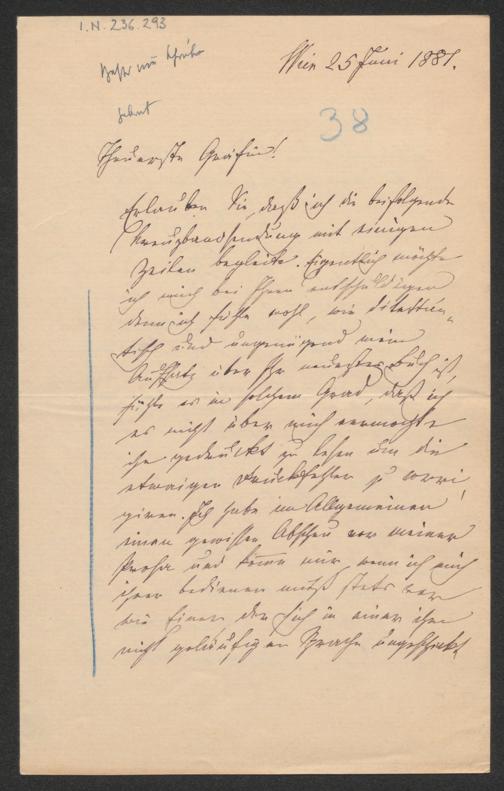 I.N. 236.293
Wien 25 Juni 1881.
38
Theuerste Gräfin!
Erlauben Sie, daß ich die beifolgende
Kreuzbandsendung mit einigen
Zeilen begleite. Eigentlich möchte
ich mich bei Ihnen entschuldigen
denn ich fühle wohl, wie dilettan„
tisch und ungenügend mein
Aufsatz über Ihr neuestes Buch ist,
fühle es in solchem Grad, daß ich
es nicht über mich vermochte
ihn gedruckt zu lesen um die
etwaigen Druckfehler zu corri
giren. Ich habe im Allgemeinen
einen gewissen Abscheu vor meiner
Prosa und komme mir, wenn ich mich
ihrer bedienen muß stets vor
wie Einer der sich in einer ihm
nicht geläufigen Sprache ungeschickt